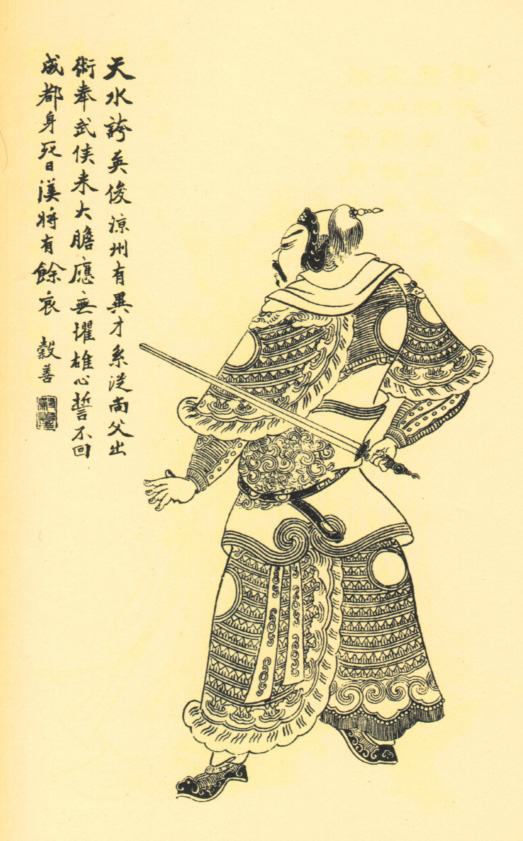 天水誇英俊涼州有異才系從尚父出
術奉武侯来大膽應無懼雄心誓不回
成都身死日漢將有餘哀　穀善